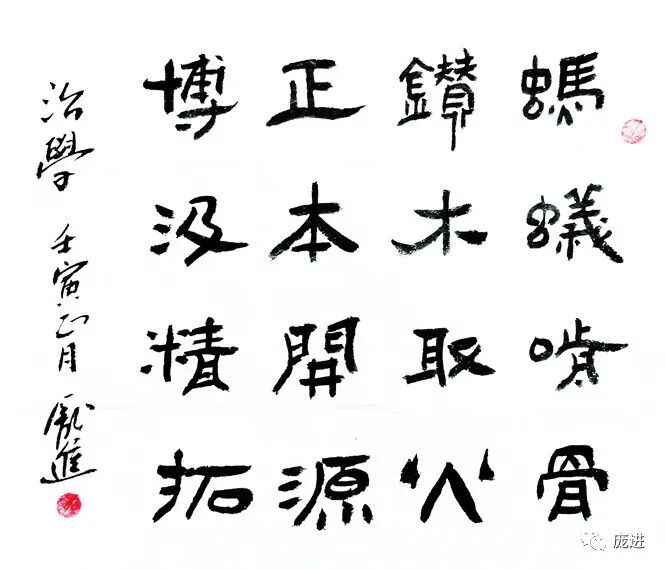 螞蟻啃骨
鑽木取火
正本開源
博汲精拓
治學 壬寅正月 龐進
庞进